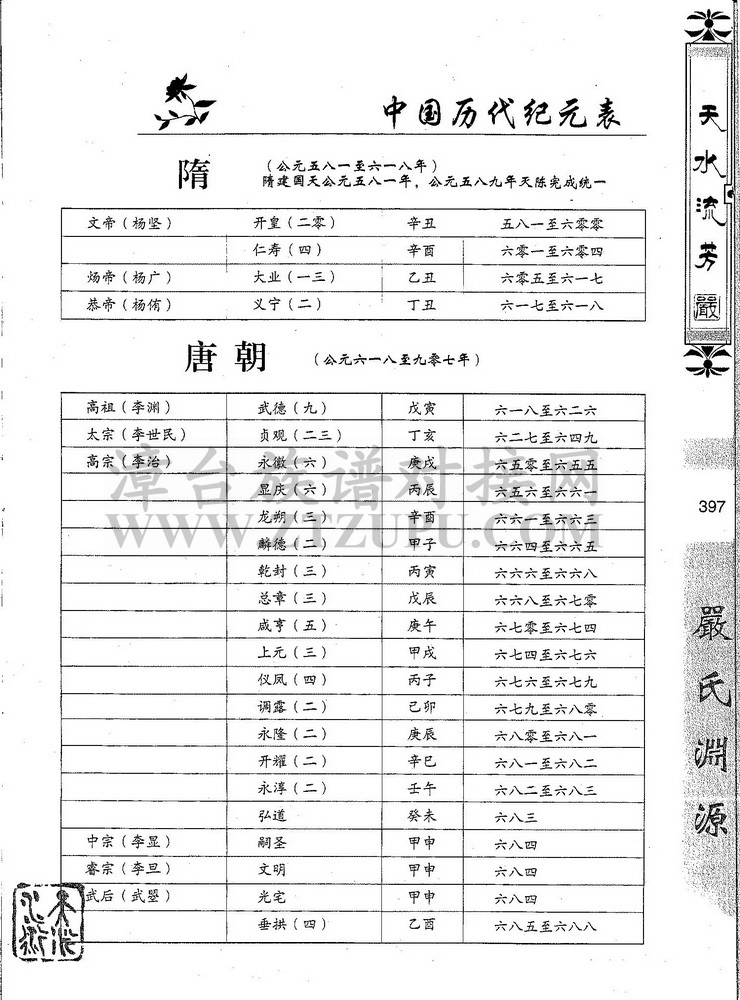 中国历代纪元表
隋
（公元五八一至六一八年）
隋建国天公元五八一年，公元五八九年天陈完成统一
文帝（杨坚） 开皇（二零） 辛丑 五八一至六零零
仁寿（四） 辛酉 六零一至六零四
炀帝（杨广） 大业（一三） 乙丑 六零五至六一七
恭帝（杨侑） 义宁（二） 丁丑 六一七至六一八
唐朝 （公元六一八至九零七年）
高祖（李渊） 武德（九） 戊寅 六一八至六二六
太宗（李世民） 贞观（二三） 丁亥 六二七至六四九
高宗（李治） 永徽（六） 庚戌 六五零至六五五
显庆（六） 丙辰 六五六至六六一
龙朔（三） 辛酉 六六一至六六三
麟德（二） 甲子 六六四至六六五
乾封（三） 丙寅 六六六至六六八
总章（三） 戊辰 六六八至六七零
咸亨（五） 庚午 六七零至六七四
上元（三） 甲戌 六七四至六七六
仪凤（四） 丙子 六七六至六七九
调露（二） 己卯 六七九至六八零
永隆（二） 庚辰 六八零至六八一
开耀（二） 辛巳 六八一至六八二
永淳（二） 壬午 六八二至六八三
弘道 癸未 六八三
中宗（李显） 嗣圣 甲申 六八四
睿宗（李旦） 文明 甲申 六八四
武后（武曌） 光宅 甲申 六八四
垂拱（四） 乙酉 六八五至六八八
天水流芳
嚴
397
嚴氏淵源
漳台族谱对接网
WWW.ZTZUPU.COM